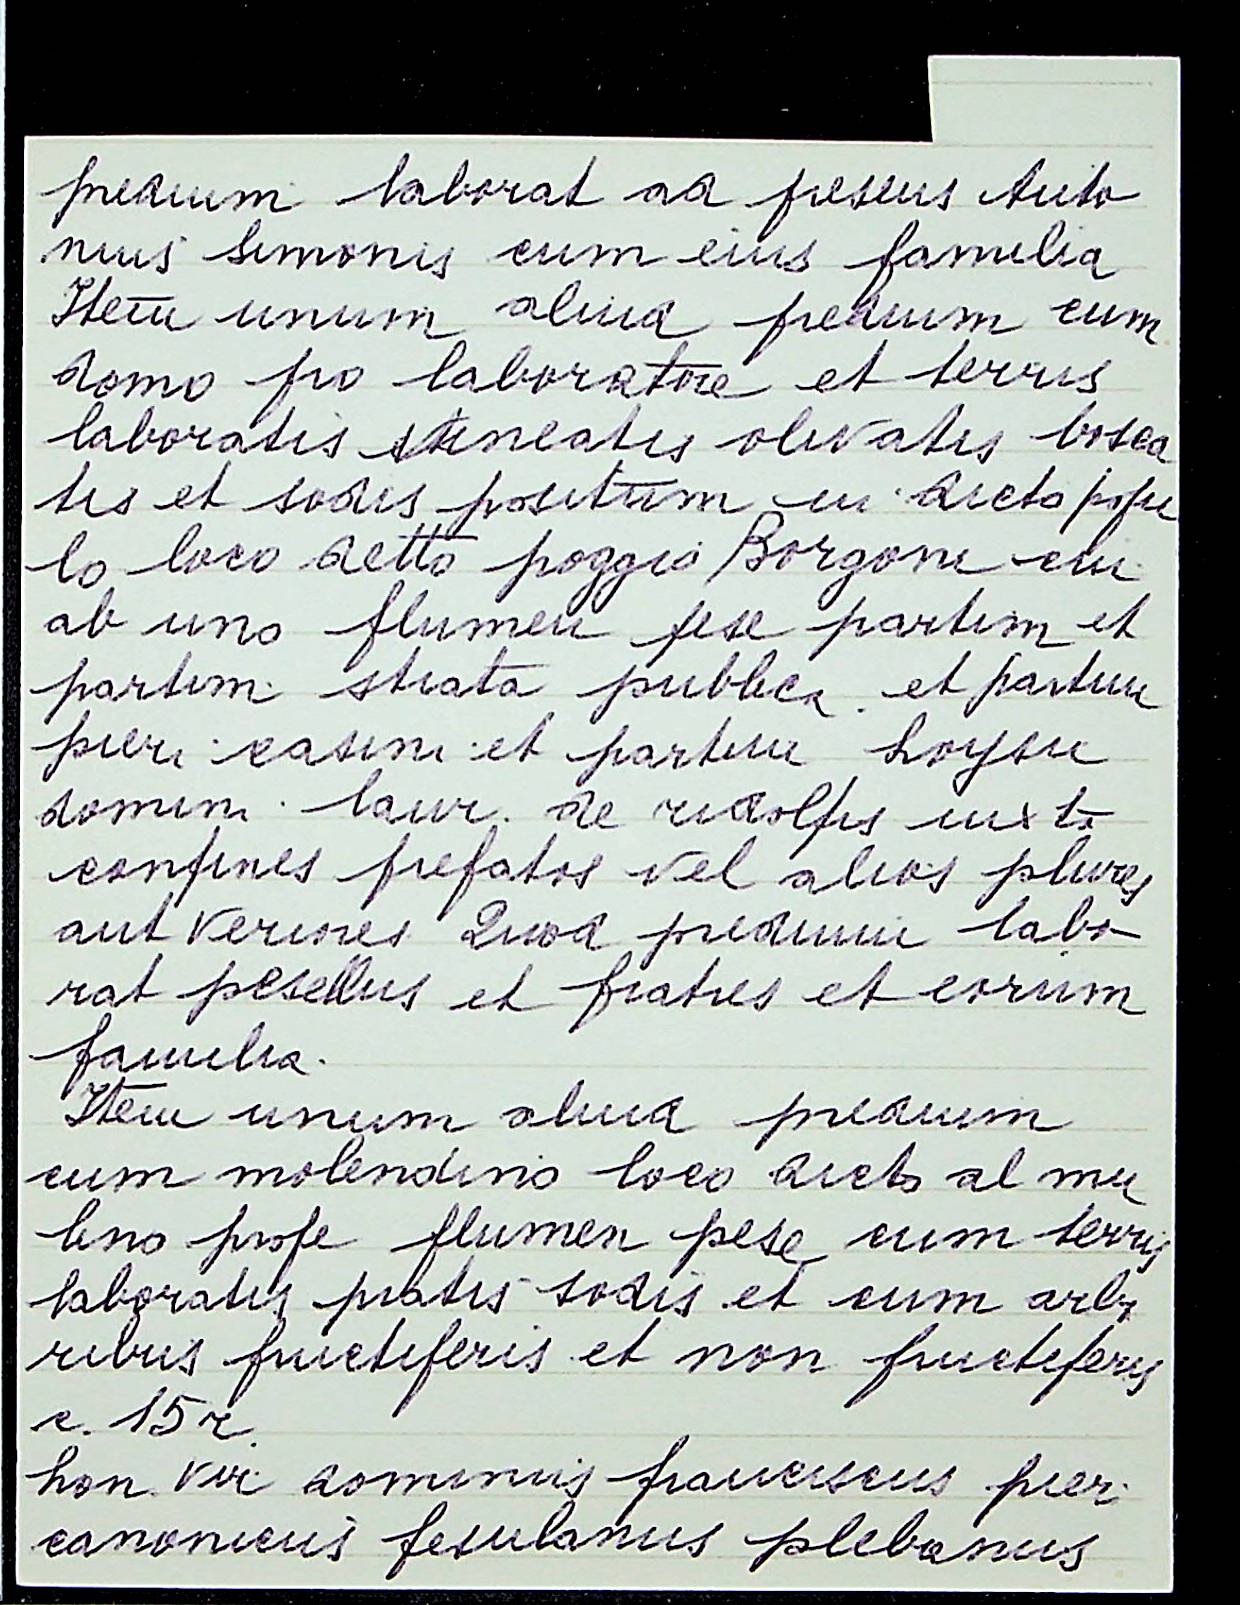 predium laborat ad presens Anto
nius Simonis cum eius familia
Item unum aliud predium cum
domo pro laboratore et terris
laboratis vineatis olivatis bosca
tis et sodis positum in dicto popu
lo loco detto poggio Borgoni cui
ab uno flumen pese partim et
partim strata publica et partim
pieri casini et partim Loysii
domini laur. de ridolfis iuxta
confines prefatos vel alios plures
aut veriores Quod predium labo
rat pesellus et fratres et eorum
familia.
Item unum aliud predium
cum molendino loco dicto al mu
lino prope flumen pese cum terris
laboratis pratis sodis et cum arbo
ribus fructiferis et non fructiferis
c. 15 r.
hon. vir dominus franciscus pier.
canonicus fesulanus plebanus